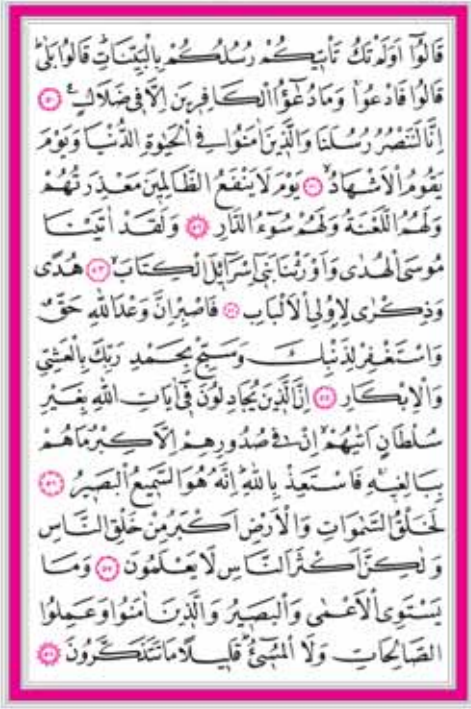 قَالُوٓا اَوَلَمْ تَكُ تَأْت۪يكُمْ رُسُلُكُمْ بِالْبَيِّنَاتِۜ قَالُوا بَلٰىۜ
قَالُوا فَادْعُواۚ وَمَا دُعٰٓؤُا الْكَافِر۪ينَ اِلَّا ف۪ي ضَلَالٍ۟ ﴿٥٠﴾
اِنَّا لَنَنْصُرُ رُسُلَنَا وَالَّذ۪ينَ اٰمَنُوا فِي الْحَيٰوةِ الدُّنْيَا وَيَوْمَ
يَقُومُ الْاَشْهَادُۙ ﴿٥١﴾ يَوْمَ لَا يَنْفَعُ الظَّالِم۪ينَ مَعْذِرَتُهُمْ
وَلَهُمُ اللَّعْنَةُ وَلَهُمْ سُٓوءُ الدَّارِ ﴿٥٢﴾ وَلَقَدْ اٰتَيْنَا
مُوسَى الْهُدٰى وَاَوْرَثْنَا بَن۪ٓي اِسْرَٓائ۪لَ الْكِتَابَۙ ﴿٥٣﴾ هُدًى
وَذِكْرٰى لِاُو۬لِي الْاَلْبَابِ ﴿٥٤﴾ فَاصْبِرْ اِنَّ وَعْدَ اللّٰهِ حَقٌّ
وَاسْتَغْفِرْ لِذَنْبِكَ وَسَبِّحْ بِحَمْدِ رَبِّكَ بِالْعَشِيِّ
وَالْاِبْكَارِ ﴿٥٥﴾ اِنَّ الَّذ۪ينَ يُجَادِلُونَ ف۪ٓي اٰيَاتِ اللّٰهِ بِغَيْرِ
سُلْطَانٍ اَتٰيهُمْۙ اِنْ ف۪ي صُدُورِهِمْ اِلَّا كِبْرٌ مَا هُمْ
بِبَالِغ۪يهِۚ فَاسْتَعِذْ بِاللّٰهِۜ اِنَّهُ هُوَ السَّم۪يعُ الْبَص۪يرُ ﴿٥٦﴾
لَخَلْقُ السَّمٰوَاتِ وَالْاَرْضِ اَكْبَرُ مِنْ خَلْقِ النَّاسِ
وَلٰكِنَّ اَكْثَرَ النَّاسِ لَا يَعْلَمُونَ ﴿٥٧﴾ وَمَا
يَسْتَوِي الْاَعْمٰى وَالْبَص۪يرُ وَالَّذ۪ينَ اٰمَنُوا وَعَمِلُوا
الصَّالِحَاتِ وَلَا الْمُس۪ٓيءُۜ قَل۪يلًا مَا تَتَذَكَّرُونَ ﴿٥٨﴾